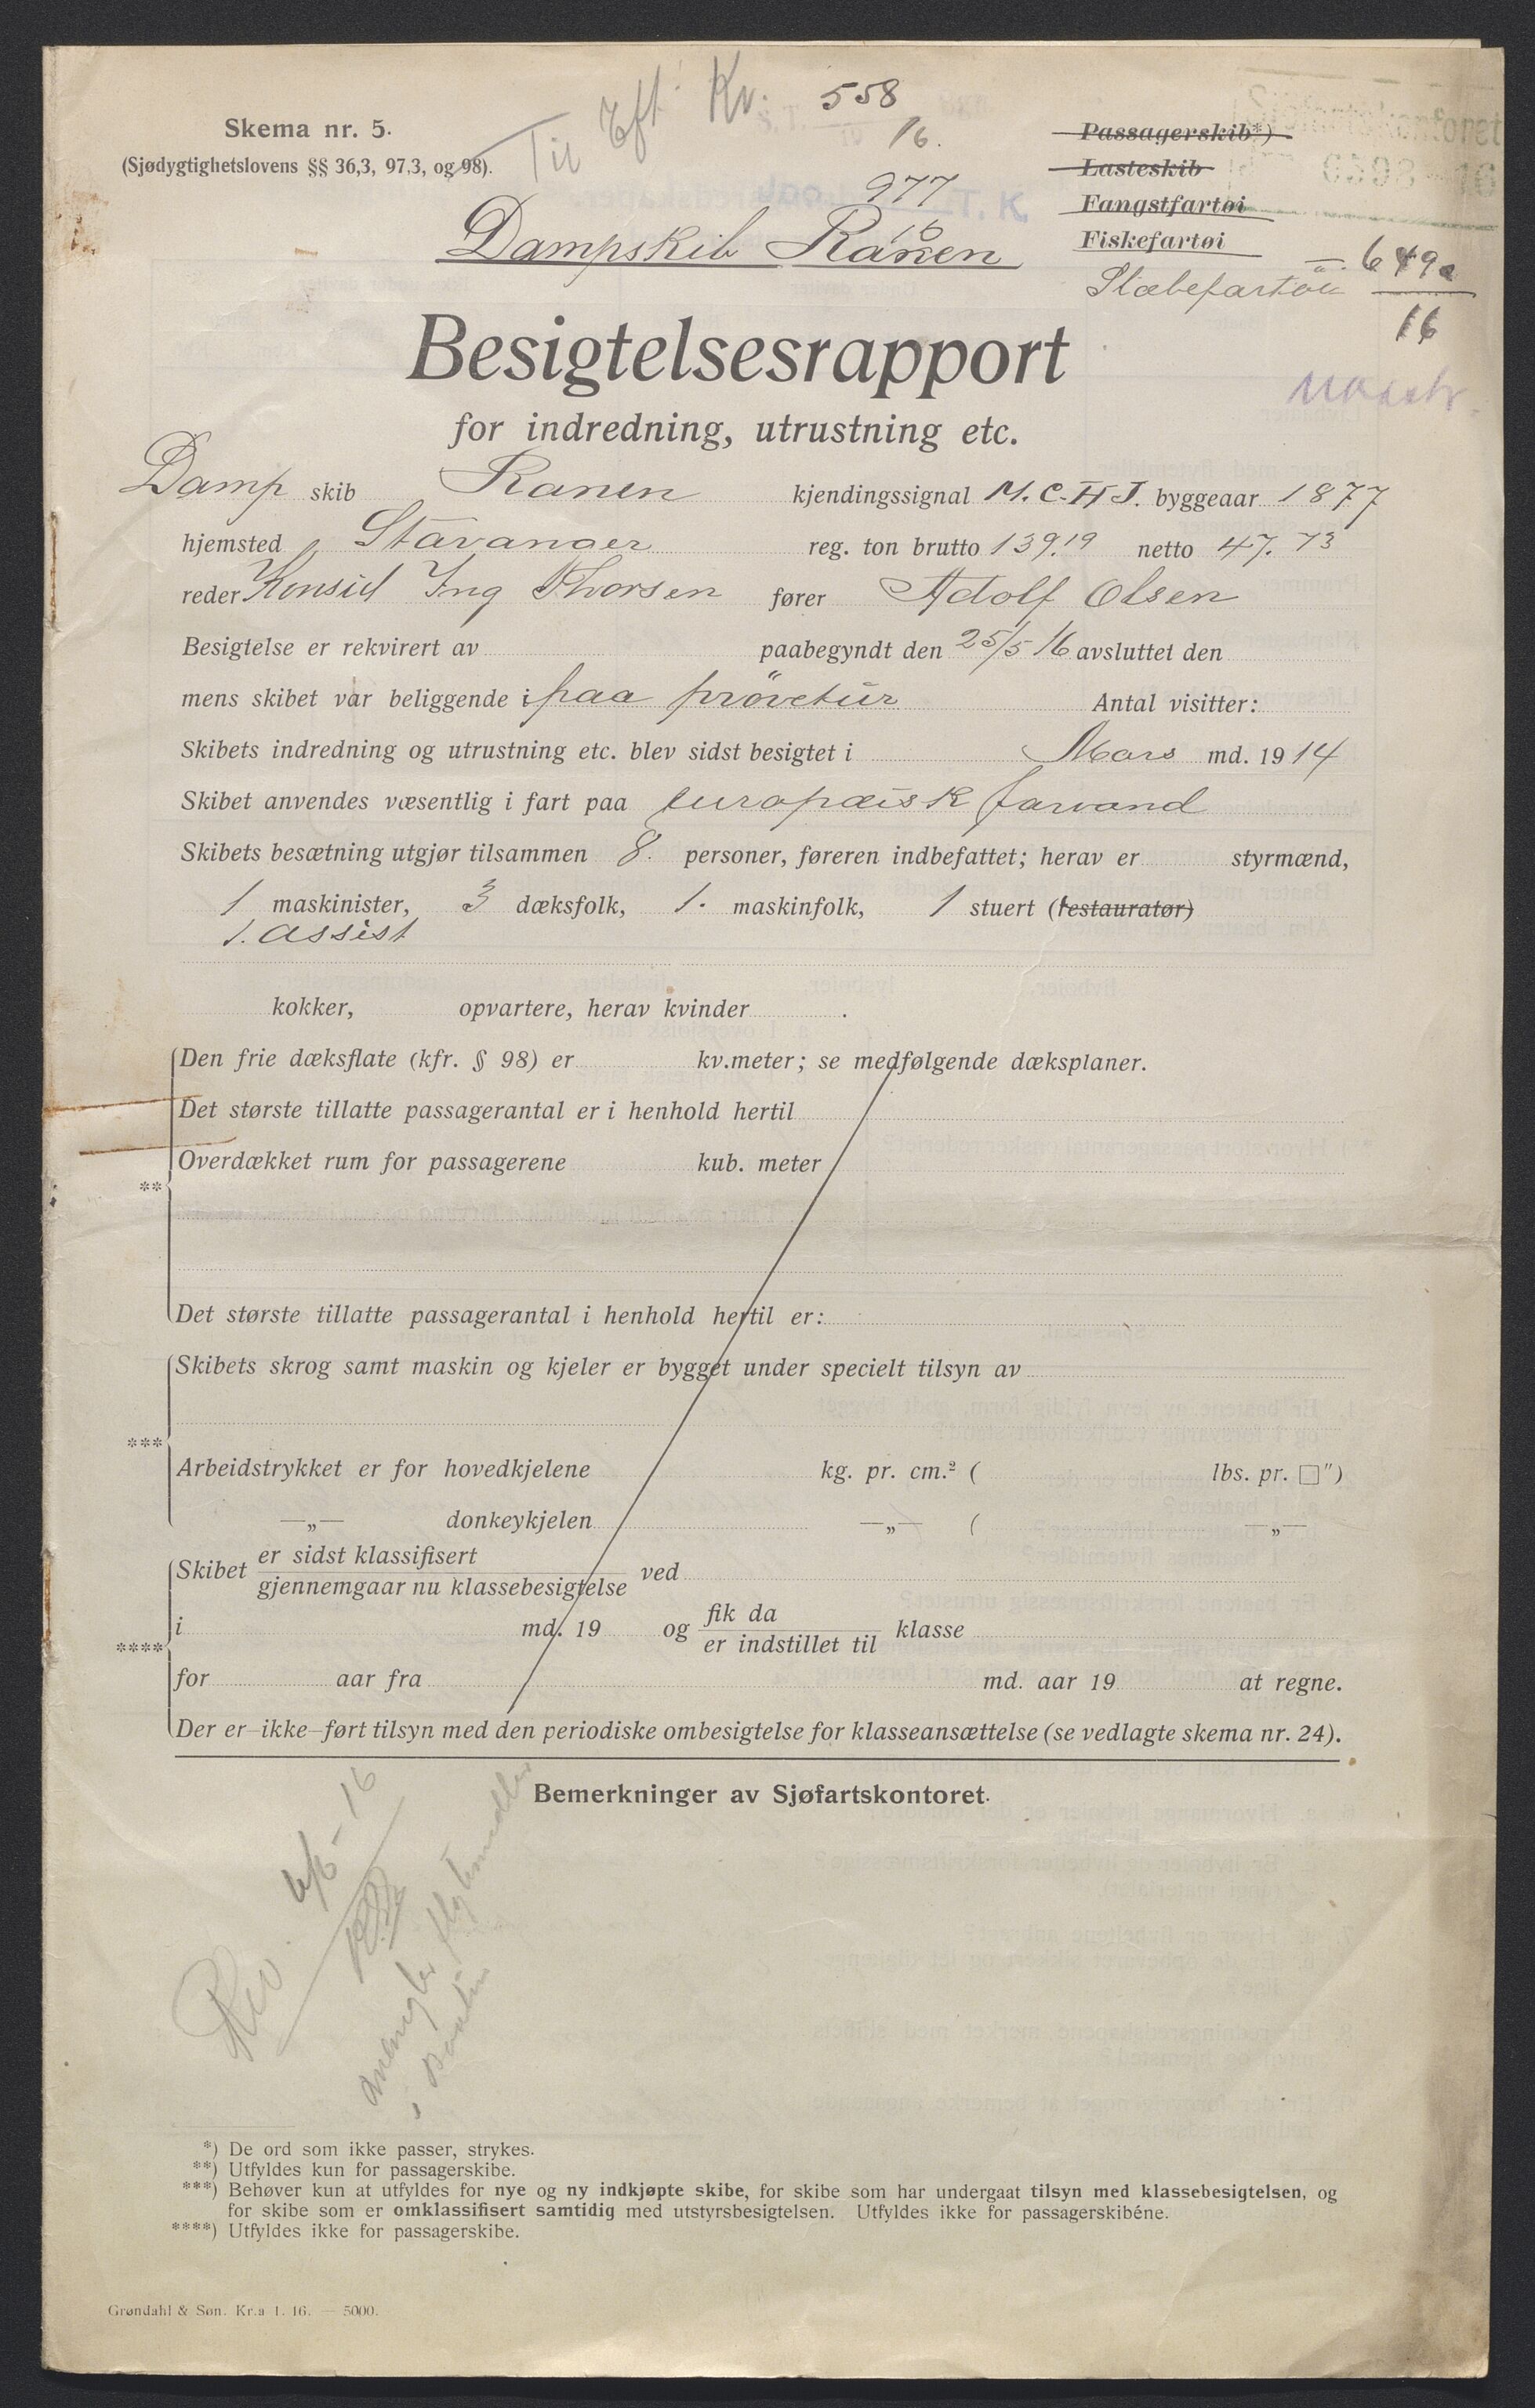 Til Eft. Kv. 558
16.
Skema nr. 5.
(Sjødygtighetslovens §§ 36,3, 97,3, og 98).
977
16
Dampskib Ranen
Passagerskib*)
Lasteskib
Fangstfartøi
Fiskefartøi
Slæbefartøi
6598 16
649a
16
Besigtelsesrapport
for indredning, utrustning etc.
Damp skib Ranen kjendingssignal M.C.H.J. byggeaar 1877
hjemsted Stavanger reg. ton brutto 139.19 netto 47.73
reder Konsul Ing Thorsen fører Adolf Olsen
Besigtelse er rekvirert av paabegyndt den 25/5 16 avsluttet den
mens skibet var beliggende i paa prövetur Antal visitter:
Skibets indredning og utrustning etc. blev sidst besigtet i Mars md. 1914
Skibet anvendes væsentlig i fart paa europæisk farvand
Skibets besætning utgjør tilsammen 8. personer, føreren indbefattet; herav er styrmænd,
1 maskinister, 3 dæksfolk, 1. maskinfolk, 1 stuert (restauratør)
1. assist
kokker, opvartere, herav kvinder .
Den frie dæksflate (kfr. § 98) er kv.meter; se medfølgende dæksplaner.
Det største tillatte passagerantal er i henhold hertil
Overdækket rum for passagerene kub. meter
**
Det største tillatte passagerantal i henhold hertil er:
Skibets skrog samt maskin og kjeler er bygget under specielt tilsyn av
***
Arbeidstrykket er for hovedkjelene kg. pr. cm.² ( lbs. pr. □")
—„— donkeykjelen —„— ( —„—
Skibet er sidst klassifisert
gjennemgaar nu klassebesigtelse ved
i md. 19 og fik da
er indstillet til klasse
****
for aar fra md. aar 19 at regne.
Der er–ikke–ført tilsyn med den periodiske ombesigtelse for klasseansættelse (se vedlagte skema nr. 24).
Bemerkninger av Sjøfartskontoret.
Rev.
*) De ord som ikke passer, strykes.
**) Utfyldes kun for passagerskibe.
***) Behøver kun at utfyldes for nye og ny indkjøpte skibe, for skibe som har undergaat tilsyn med klassebesigtelsen, og
for skibe som er omklassifisert samtidig med utstyrsbesigtelsen. Utfyldes ikke for passagerskibéne.
****) Utfyldes ikke for passagerskibe.
Grøndahl & Søn. Kr.a 1. 16. — 5000.